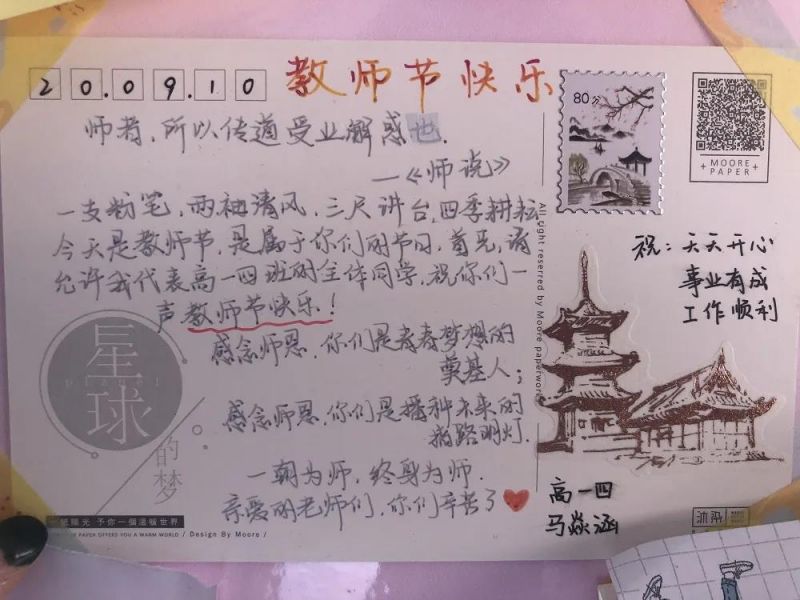 20.09.10
教师节快乐
师者,所以传道受业解惑也.
—《师说》
一支粉笔,两袖清风,三尺讲台,四季耕耘
今天是教师节,是属于你们的节日,首先,请
允许我代表高一四班的全体同学,祝你们一
声教师节快乐!
感念师恩,你们是青春梦想的
奠基人;
感念师恩,你们是播种未来的
指路明灯.
一朝为师,终身为师.
亲爱的老师们,你们辛苦了❤
80分
MOORE
PAPER
All right reserved by Moore paperworks
祝:天天开心
事业有成
工作顺利
高一四
马焱涵
星球
的梦
予你一個溫暖世界
PAPER OFFERS YOU A WARM WORLD / Design By Moore /